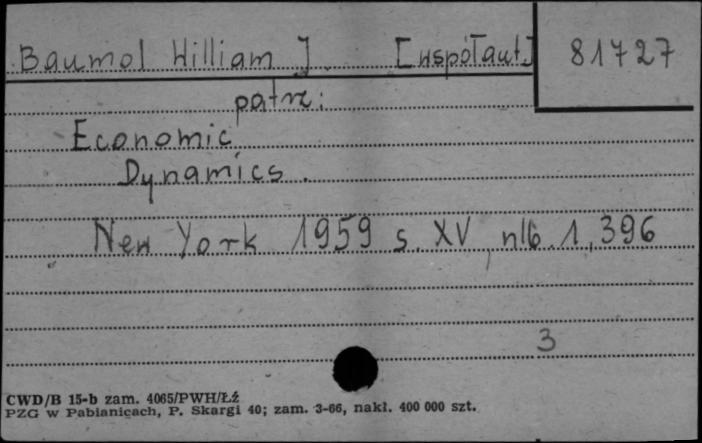 Baumol William J. [współaut.] 81727
patrz:
Economic
Dynamics.
New York 1959 s. XV, nlb. 1, 396
3
CWD/B 15-b zam. 4065/PWH/Łź
PZG w Pabianicach, P. Skargi 40; zam. 3-66, nakł. 400 000 szt.